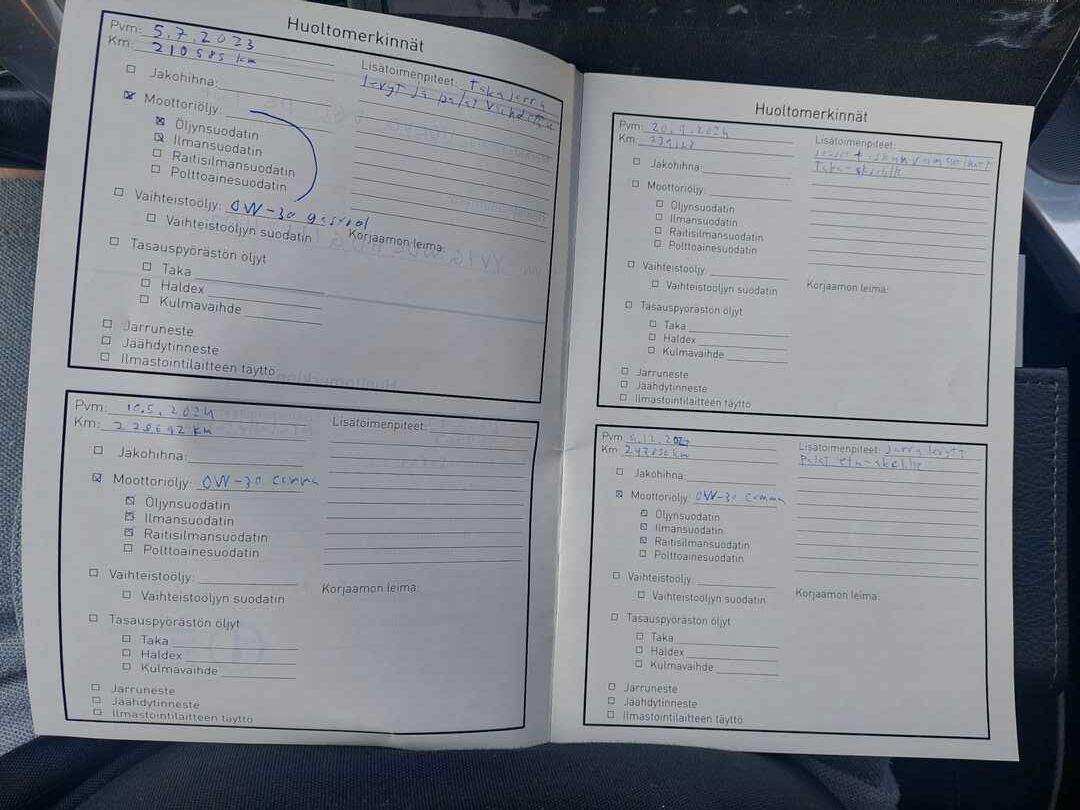 Huoltomerkinnät
Pvm: 5.7.2023
Km: 210585 km
Jakohihna:
Moottoriöljy:
Öljynsuodatin
Ilmansuodatin
Raitisilmansuodatin
Polttoainesuodatin
Vaihteistoöljy: 0W-30 gastrol
Vaihteistoöljyn suodatin
Tasauspyörästön öljyt
Taka
Haldex
Kulmavaihde
Jarruneste
Jäähdytinneste
Ilmastointilaitteen täyttö
Lisätoimenpiteet: takajarru
levyt ja palat
Korjaamon leima:
Pvm: 10.5.2024
Km: 228692 km
Jakohihna:
Moottoriöljy: 0W-30 comma
Öljynsuodatin
Ilmansuodatin
Raitisilmansuodatin
Polttoainesuodatin
Vaihteistoöljy:
Vaihteistoöljyn suodatin
Tasauspyörästön öljyt
Taka
Haldex
Kulmavaihde
Jarruneste
Jäähdytinneste
Ilmastointilaitteen täyttö
Lisätoimenpiteet:
Korjaamon leima:
Huoltomerkinnät
Pvm: 20.9.2024
Km:
Jakohihna:
Moottoriöljy:
Öljynsuodatin
Ilmansuodatin
Raitisilmansuodatin
Polttoainesuodatin
Vaihteistoöljy:
Vaihteistoöljyn suodatin
Tasauspyörästön öljyt
Taka
Haldex
Kulmavaihde
Jarruneste
Jäähdytinneste
Ilmastointilaitteen täyttö
Lisätoimenpiteet:
Taka-akselille
Korjaamon leima:
Pvm: 9.12.2024
Km: km
Jakohihna:
Moottoriöljy: 0W-30 comma
Öljynsuodatin
Ilmansuodatin
Raitisilmansuodatin
Polttoainesuodatin
Vaihteistoöljy:
Vaihteistoöljyn suodatin
Tasauspyörästön öljyt
Taka
Haldex
Kulmavaihde
Jarruneste
Jäähdytinneste
Ilmastointilaitteen täyttö
Lisätoimenpiteet: Jarru levytt
Palat etu-akselille
Korjaamon leima: